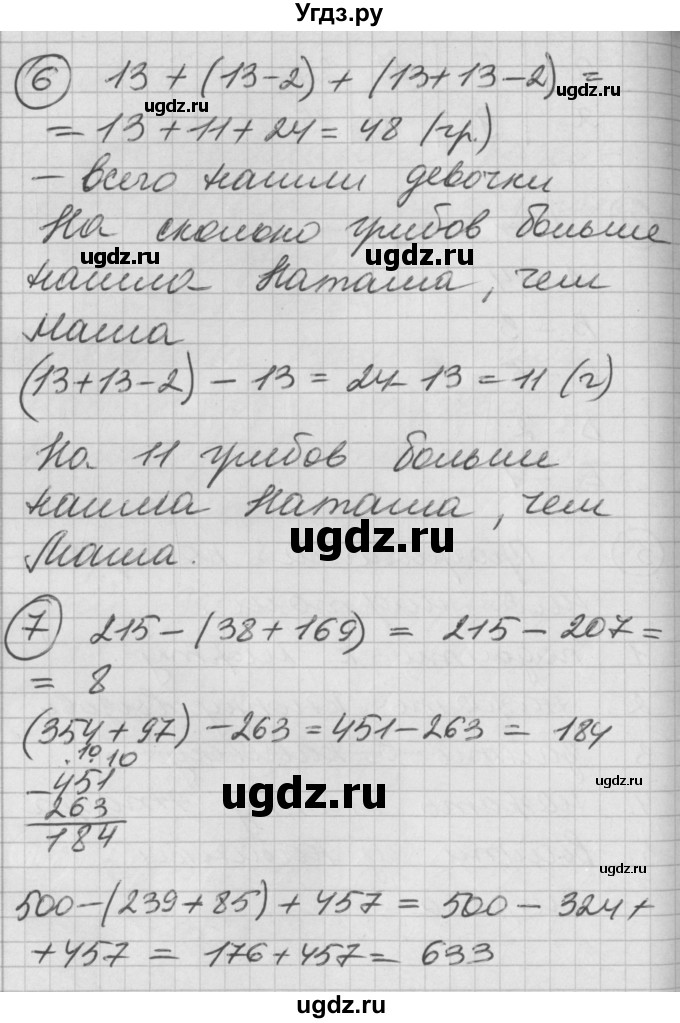 Угдз.ру
6 13 + (13-2) + (13+13-2) =
= 13 + 11 + 24 = 48 (гр.)
- всего нашли девочки
На сколоко грибов больше
нашла Наташа, чем
Маша
(13+13-2) - 13 = 24-13 = 11 (г)
На 11 грибов больше
нашла Наташа, чем
Маша.
7 215 - (38 + 169) = 215 - 207 =
= 8
(354 + 97) - 263 = 451 - 263 = 184
. 10 . 10
- 451
263
184
500 - (239 + 85) + 457 = 500 - 324 +
+ 457 = 176 + 457 = 633
ugdz.ru
ugdz.ru
ugdz.ru
ugdz.ru
ugdz.ru
ugdz.ru
ugdz.ru
ugdz.ru
ugdz.ru
ugdz.ru